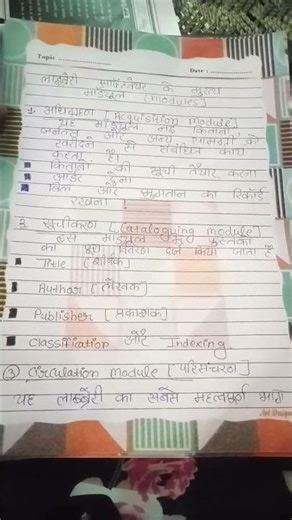 Topic
Date :
लाइब्रेरी सॉफ्टवेयर के मुख्य
माड्यूल [modules]
1. अधिग्रहण [Acquisition module]
यह माड्यूल नई किताबों,
जर्नल्स और अन्य सामग्री को
खरीदने से संबंधित कार्य
करता है।
किताबों की सूची तैयार करना
आर्डर देना
बिल और भुगतान का रिकॉर्ड
रखना ।
2. सूचीकरण [Cataloguing module]
इस माड्यूल में पुस्तको
का पूरा विवरण दर्ज किया जाता है
Title [शीर्षक]
Author [लेखक]
Publisher [प्रकाशक]
Classification और Indexing.
③ Circulation module [परिसंचरण]
यह लाइब्रेरी का सबसे महत्वपूर्ण भाग
Art Design